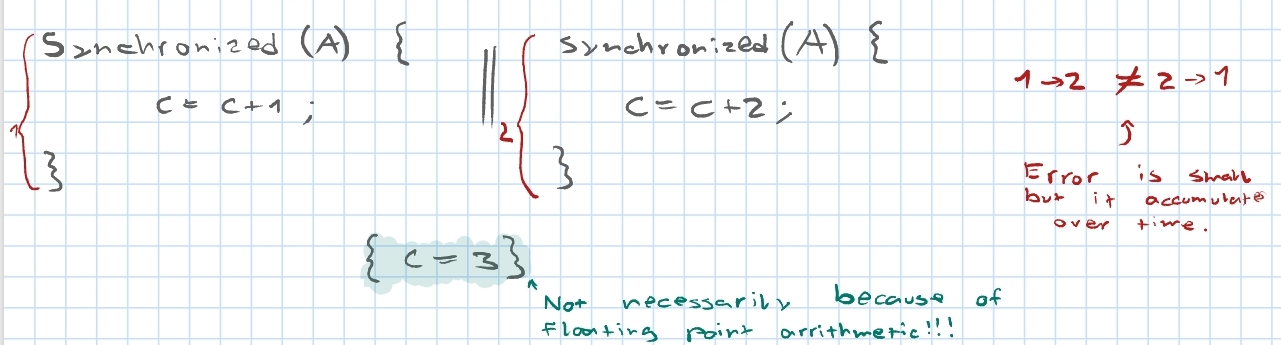 Synchronized (A) {
c = c+1 ;
}
1
||
synchronized (A) {
c = c+2 ;
}
2
1→2 ≠ 2→1
Error is small
but it accumulate
over time.
{ c = 3 }
Not necessarily because of
floating point arrithmetic!!!